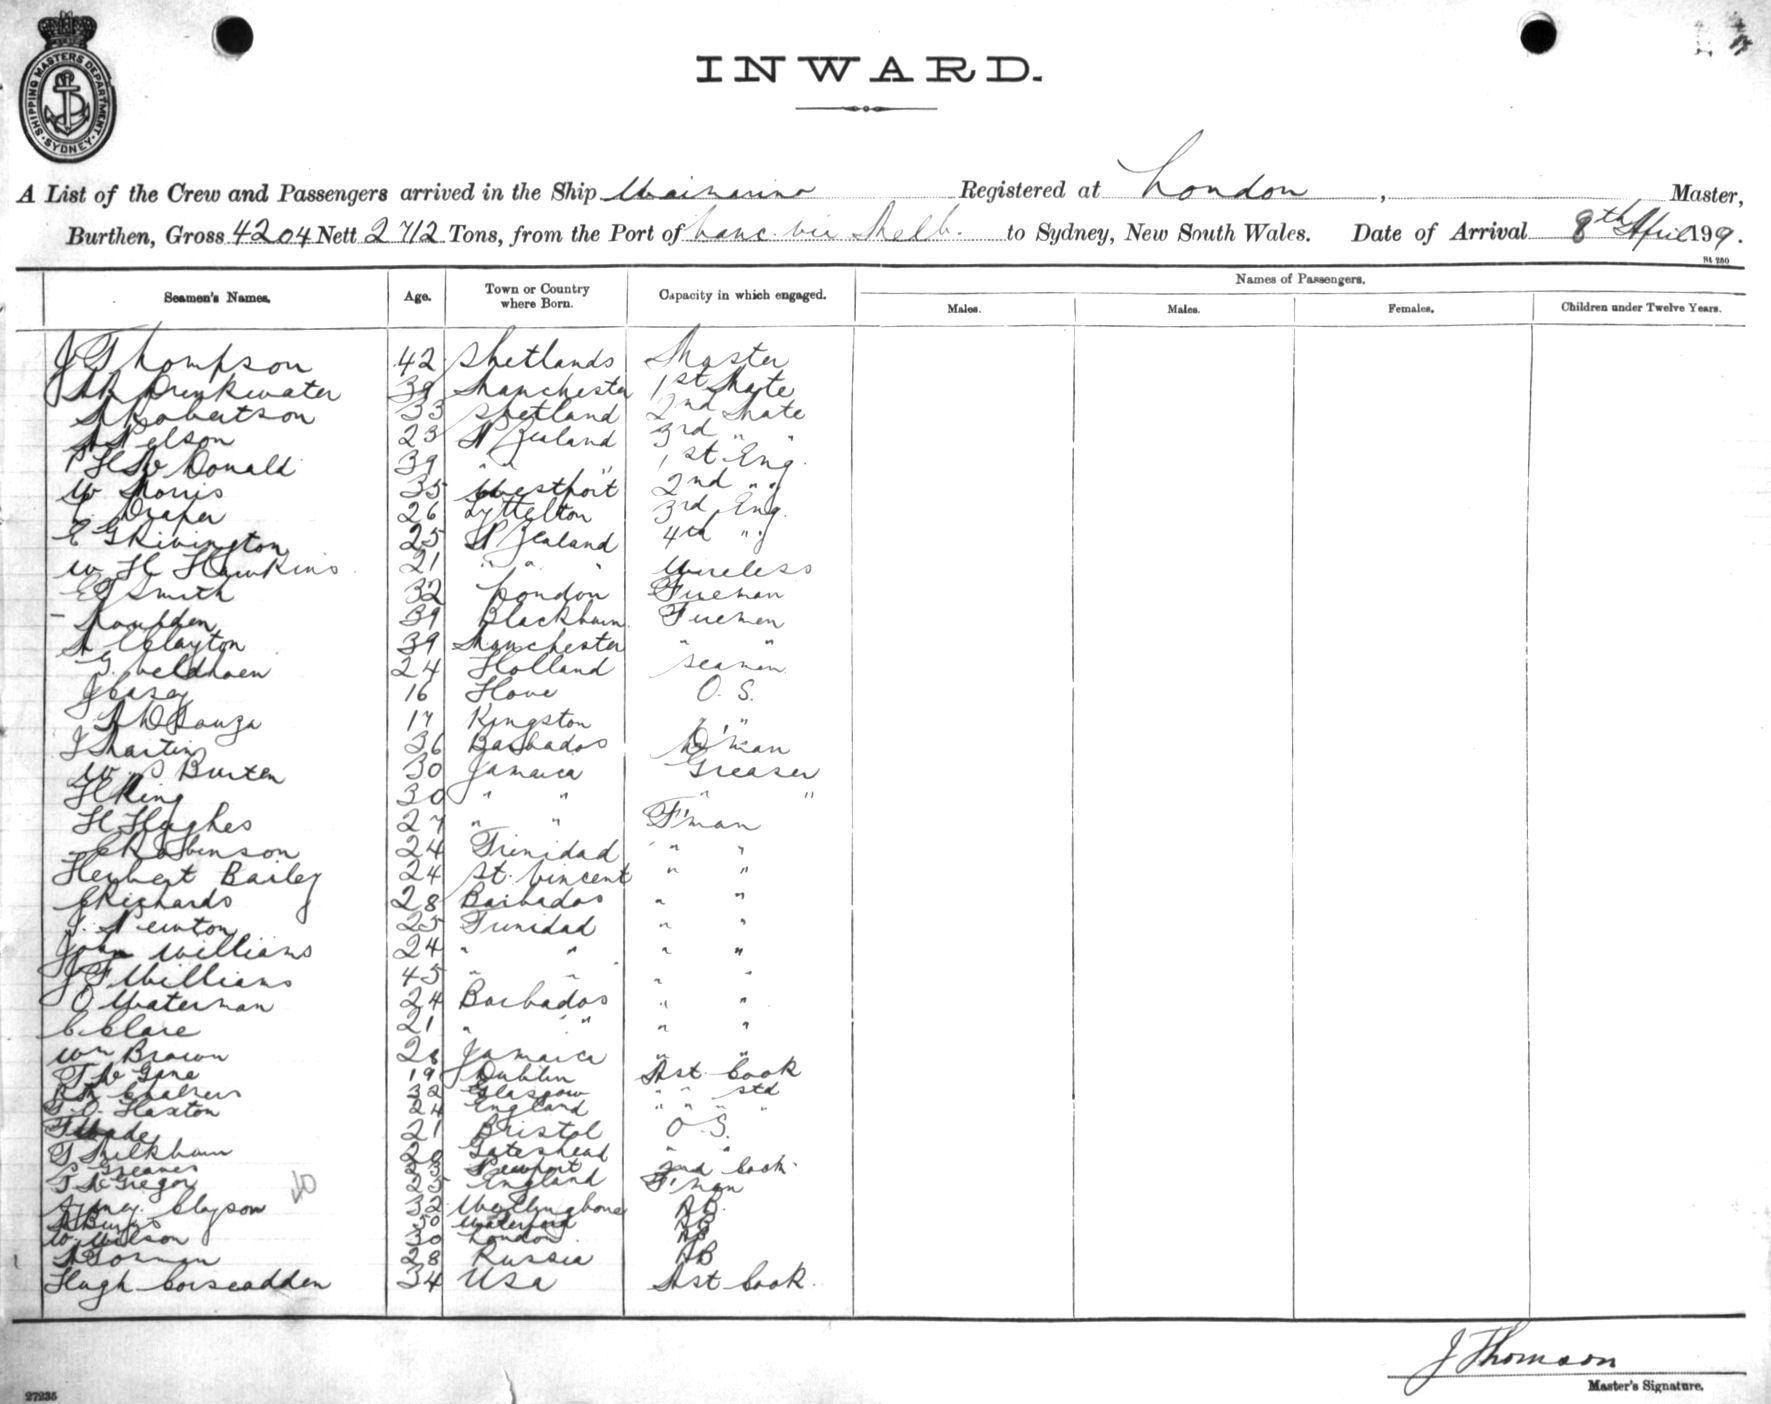 SHIPPING MASTERS DEPARTMENT
SYDNEY
INWARD.
A List of the Crew and Passengers arrived in the Ship Waimarino Registered at London , Master,
Burthen, Gross 4204 Nett 2712 Tons, from the Port of Vanc. via Melb. to Sydney, New South Wales. Date of Arrival 8th April 199.
St 280
Seamen's Names. Age. Town or Country where Born. Capacity in which engaged. Names of Passengers.
Males. Males. Females. Children under Twelve Years.
J Thompson 42 Shetlands Master
Drinkwater 39 Manchester 1st Mate
Robertson 33 Shetland 2nd Mate
Nelson 23 N Zealand 3rd " "
Mc Donald 39 " " " 1st Eng.
W Morris 35 Westport 2nd " "
Draper 26 Lyttelton 3rd Eng.
E G Rivington 25 N Zealand 4th " "
W H Hawkins 21 " " " Wireless
E T Smith 32 London Fireman
39 Blackburn Firemen
Clayton 39 Manchester " "
G. Veldhoen 24 Holland seaman
J Casey 16 Hove O. S.
D Souza 17 Kingston " "
J Martin 36 Barbados D'man
W. S Burten 30 Jamaica Greaser
H King 30 " " " "
H Hughes 27 " " F'man
C Robinson 24 Trinidad " "
Herbert Bailey 24 St. Vincent " "
C Richards 28 Barbados " "
J. Newton 25 Trinidad " "
John Williams 24 " " " "
J F Williams 45 " " " "
O Waterman 24 Barbados " "
C. Clare 21 " " " "
Wm Brown 28 Jamaica " "
T Mc Gane 19 Dublin Ast Cook
R M Chalmers 32 Glasgow " " Std
T. O. Haxton 24 England " " " "
T Wade 21 Bristol O. S.
T Milkham 20 Gateshead " "
Greaves 23 Newport 2nd Cook.
T McGregor 25 England F'man
Sydney Clayson 32 AB.
Burns 50 Waterford AB
W. Wilson 30 London AB
Gorman 28 Russia AB
Hugh Corscadden 34 USA Ast Cook.
J Thomson
Master's Signature.
27235